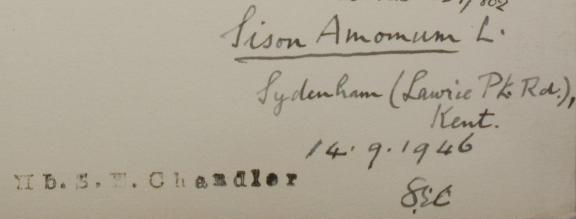 Sison Amomum L.
Sydenham (Lawrie Pk. Rd.),
Kent.
14.9.1946
Hb. S. E. Chandler
SEC